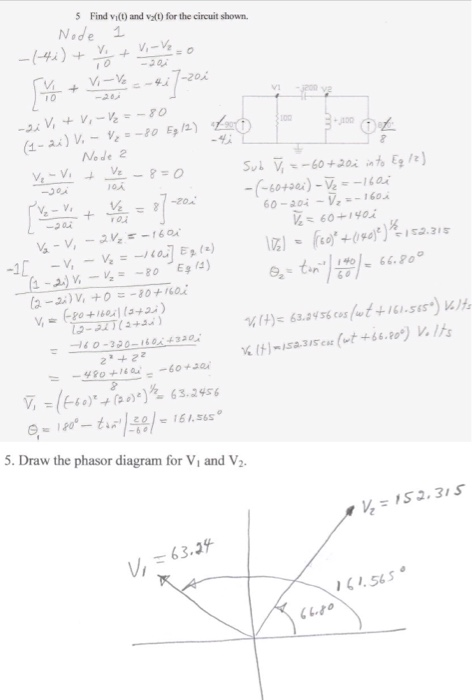 5 Find v₁(t) and v₂(t) for the circuit shown.
Node 1
-(-4i) + V₁/10 + (V₁-V₂)/-20i = 0
[V₁/10 + (V₁-V₂)/-20i = -4i] -20i
-2iV₁ + V₁ - V₂ = -80
(1-2i)V₁ - V₂ = -80 Eq(1)
Node 2
(V₂-V₁)/-20i + V₂/10i - 8 = 0
[(V₂-V₁)/-20i + V₂/10i = 8] -20i
V₂ - V₁ - 2V₂ = -160i
-1[ -V₁ - V₂ = -160i] Eq(2)
(1-2i)V₁ - V₂ = -80 Eq(1)
(2-2i)V₁ + 0 = -80 + 160i
V₁ = (-80+160i)(2+2i)/(2-2i)(2+2i)
= (-160-320-160i+320i)/(2²+2²)
= (-480+160i)/8 = -60+20i
V̄₁ = ((-60)²+(20)²)^½ = 63.2456
θ₁ = 180° - tan⁻¹|20/-60| = 161.565°
V1
V2
-4i
8
Sub V̄₁ = -60+20i into Eq(2)
-(-60+20i) - V̄₂ = -160i
60-20i - V̄₂ = -160i
V̄₂ = 60+140i
|V̄₂| = ((60)²+(140)²)^½ = 152.315
θ₂ = tan⁻¹|140/60| = 66.80°
V₁(t) = 63.2456 cos(ωt+161.565°) Volts
V₂(t) = 152.315 cos(ωt+66.80°) Volts
5. Draw the phasor diagram for V₁ and V₂.
V₂ = 152.315
V₁ = 63.24
161.565°
66.80